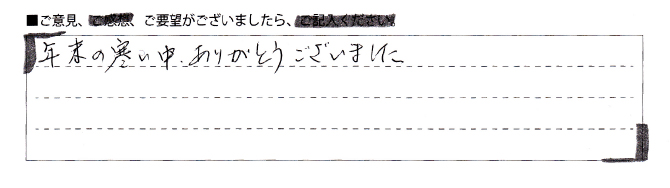 ■ご意見、ご感想、ご要望がございましたら、ご記入ください。
年末の寒い中、ありがとうございました